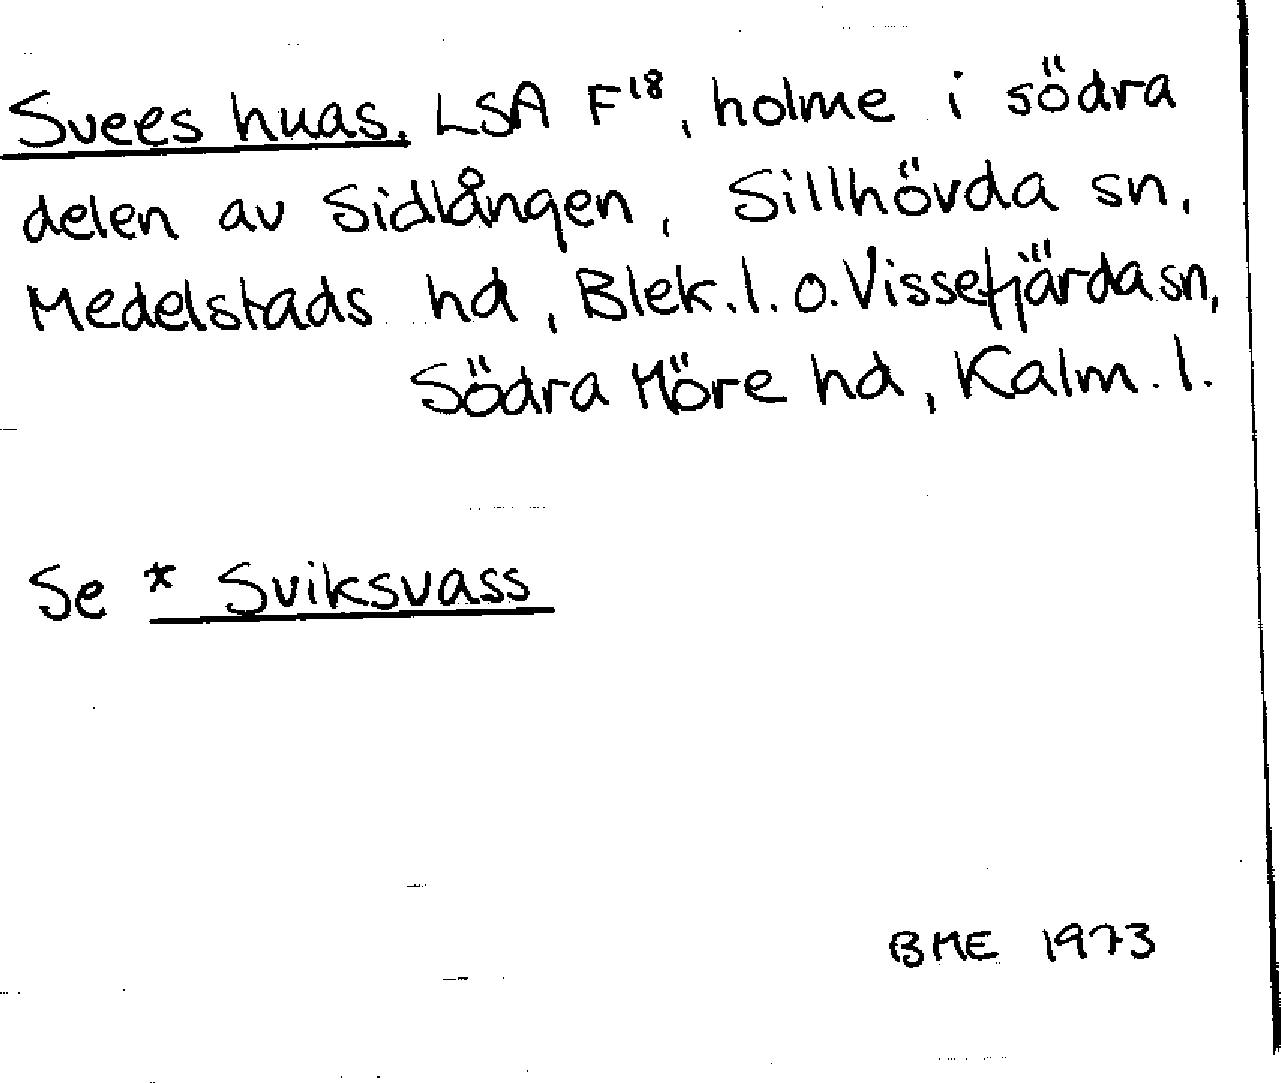 Svees huas. LSA F18, holme i södra
delen av Sidlången, Sillhövda sn,
Medelstads hd, Blek.l. o. Vissefjärda sn,
Södra Möre hd, Kalm. l.
Se * Sviksvass
BME 1973